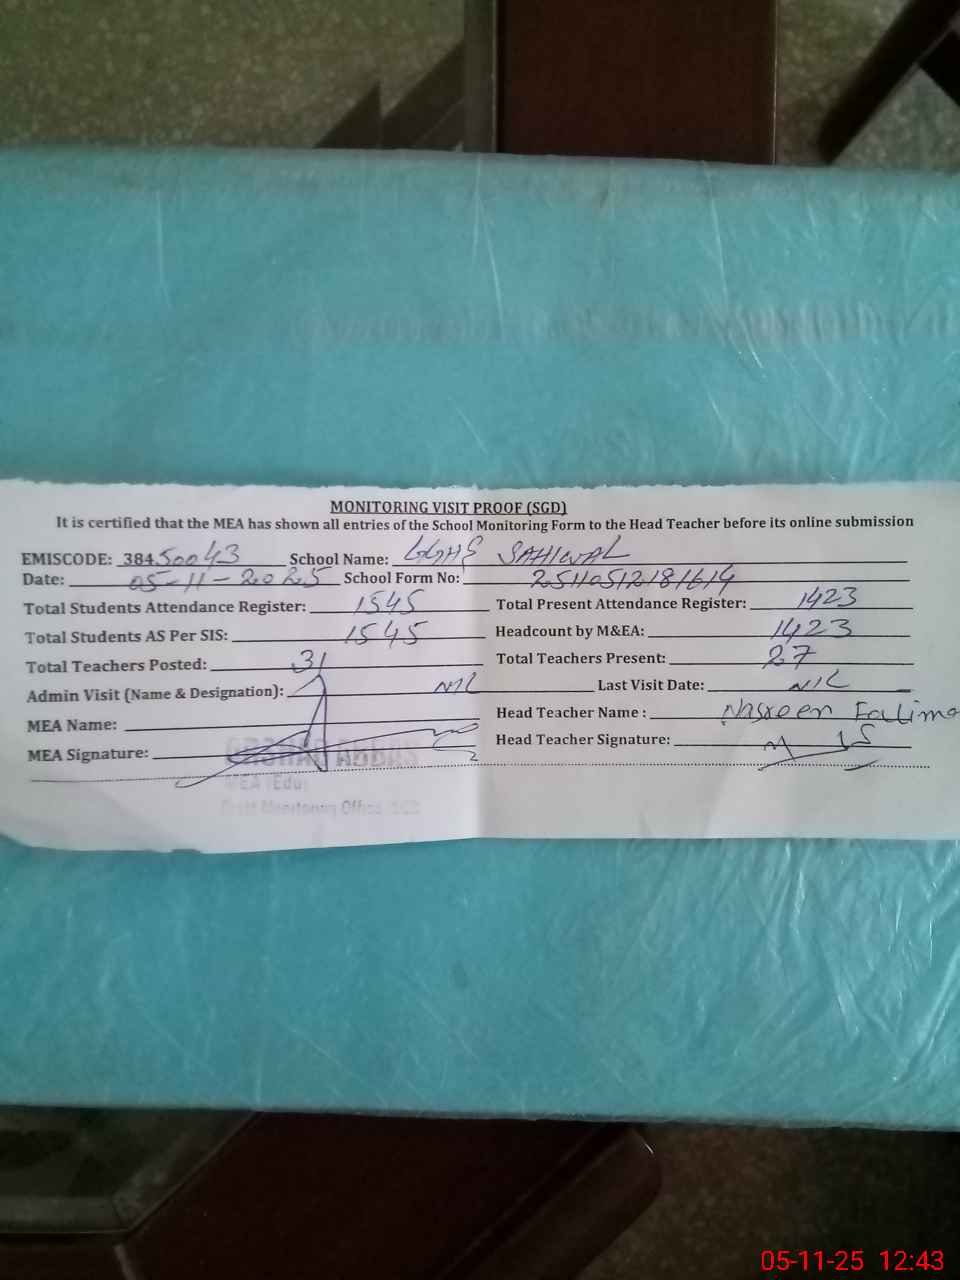 MONITORING VISIT PROOF (SGD)
It is certified that the MEA has shown all entries of the School Monitoring Form to the Head Teacher before its online submission
EMISCODE: 38450043 School Name: GGHS SAHIWAL
Date: 05-11-2025 School Form No:
Total Students Attendance Register: 1545 Total Present Attendance Register: 1423
Total Students AS Per SIS: 1545 Headcount by M&EA: 1423
Total Teachers Posted: 31 Total Teachers Present: 27
Admin Visit (Name & Designation): NIL Last Visit Date: NIL
MEA Name: Head Teacher Name : Nasreen Fatima
MEA Signature: Head Teacher Signature:
ABBAS
MEA (Edu)
Monitoring Office
05-11-25 12:43